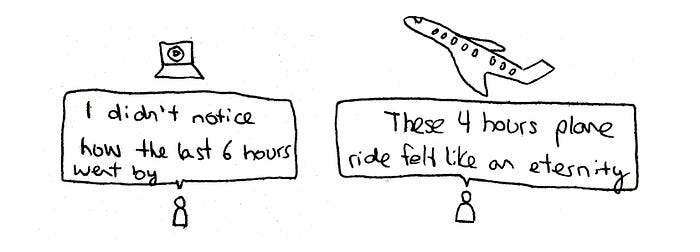 I didn't notice
how the last 6 hours
went by
These 4 hours plane
ride felt like an eternity